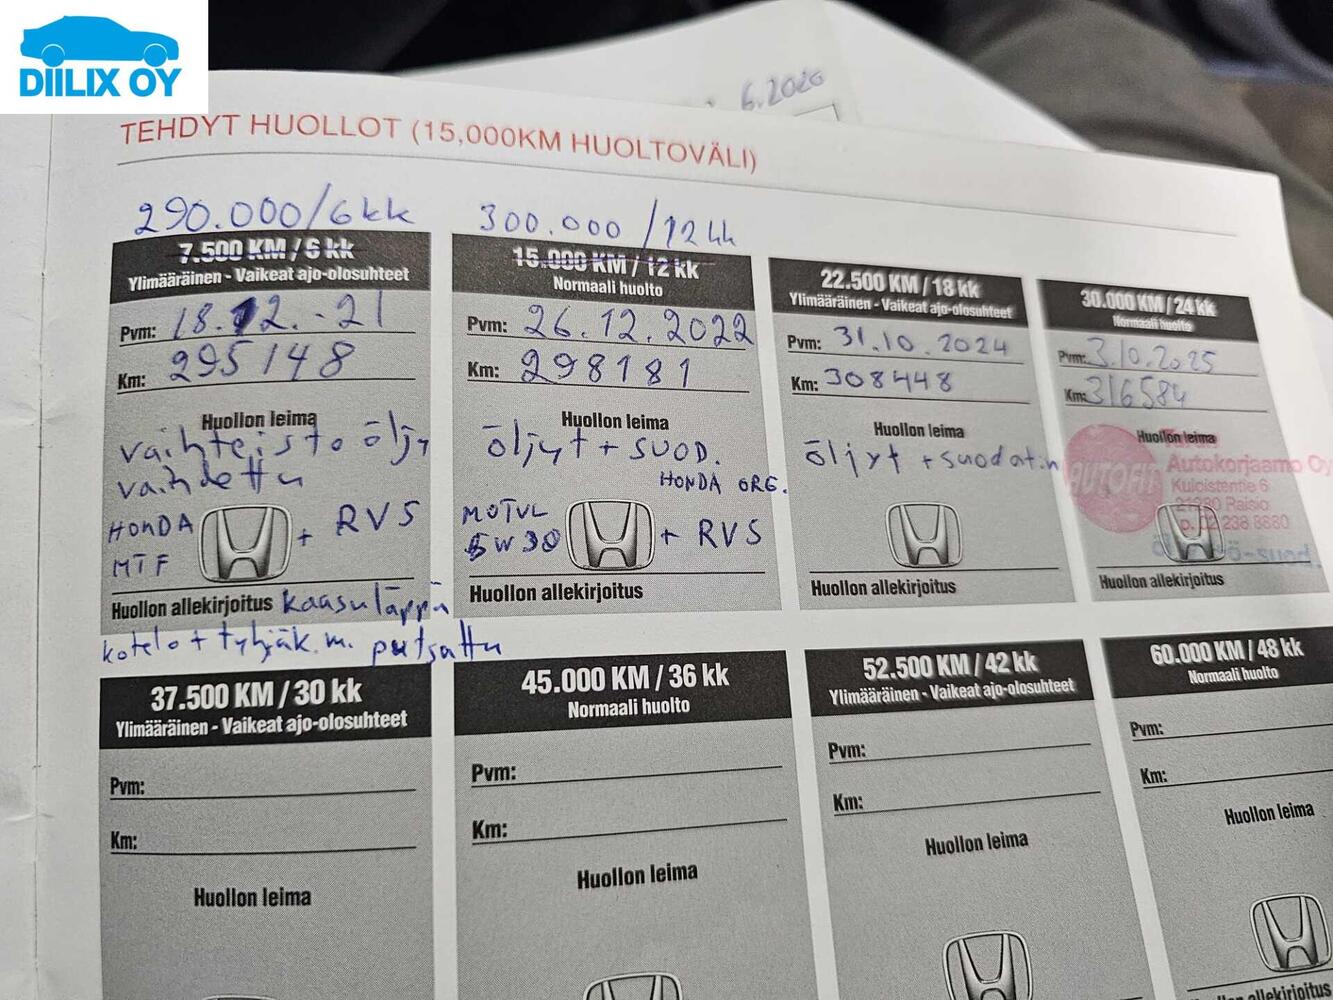 DIILIX OY
6.2020
TEHDYT HUOLLOT (15,000KM HUOLTOVÄLI)
290.000/6kk
7.500 KM / 6 kk
Ylimääräinen - Vaikeat ajo-olosuhteet
Pvm: 18.12.-21
Km: 295148
Huollon leima
vaihteisto öljy
vaihdettu
HONDA + RVS
MTF
Huollon allekirjoitus kaasuläppä
kotelo + tyhjäk.m. putsattu
300.000/12kk
15.000 KM / 12 kk
Normaali huolto
Pvm: 26.12.2022
Km: 298181
Huollon leima
öljyt + SUOD.
HONDA ORG.
MOTUL
5W30 + RVS
Huollon allekirjoitus
22.500 KM / 18 kk
Ylimääräinen - Vaikeat ajo-olosuhteet
Pvm: 31.10.2024
Km: 308448
Huollon leima
öljyt + suodatin
Huollon allekirjoitus
30.000 KM / 24 kk
Normaali huolto
Pvm: 3.10.2025
Km: 316584
Huollon leima
AUTOFIT
Autokorjaamo Oy
Kuloistentie 6
21280 Raisio
p. 02 238 8880
Huollon allekirjoitus
37.500 KM / 30 kk
Ylimääräinen - Vaikeat ajo-olosuhteet
Pvm:
Km:
Huollon leima
45.000 KM / 36 kk
Normaali huolto
Pvm:
Km:
Huollon leima
52.500 KM / 42 kk
Ylimääräinen - Vaikeat ajo-olosuhteet
Pvm:
Km:
Huollon leima
60.000 KM / 48 kk
Normaali huolto
Pvm:
Km:
Huollon leima
Huollon allekirjoitus